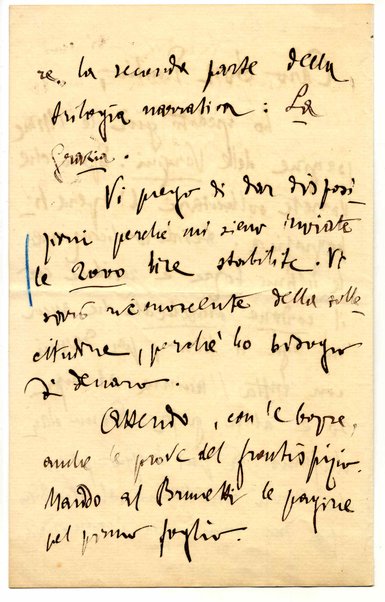 re, la seconda parte della
trilogia narrativa: La
Grazia.
Vi prego di dar disposi
zioni perché mi sieno inviate
le 2000 lire stabilite. Vi
sarò riconoscente della solle
citudine, perché ho bisogno
di denaro.
Attendo, con le bozze,
anche le prove del frontispizio.
Mando al Brunetti le pagine
pel primo foglio.